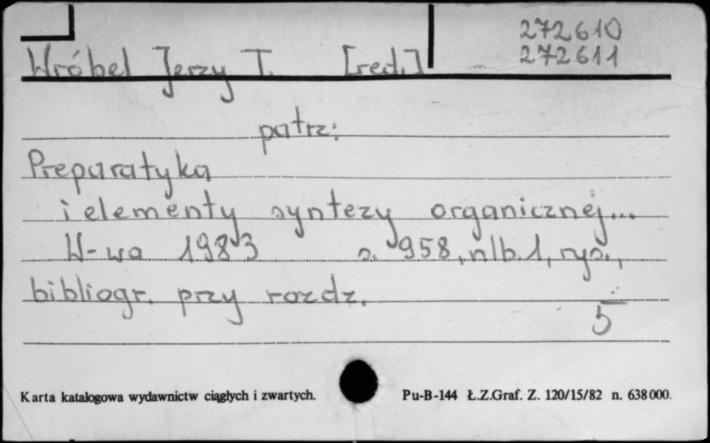 272610
272611
Wróbel Jerzy T. [red.]
patrz:
Preparatyka
i elementy syntezy organicznej...
W-wa 1983 s. 958, nlb. 1, rys.,
bibliogr. przy rozdz.
5
Karta katalogowa wydawnictw ciągłych i zwartych. Pu-B-144 Ł.Z.Graf. Z. 120/15/82 n. 638000.